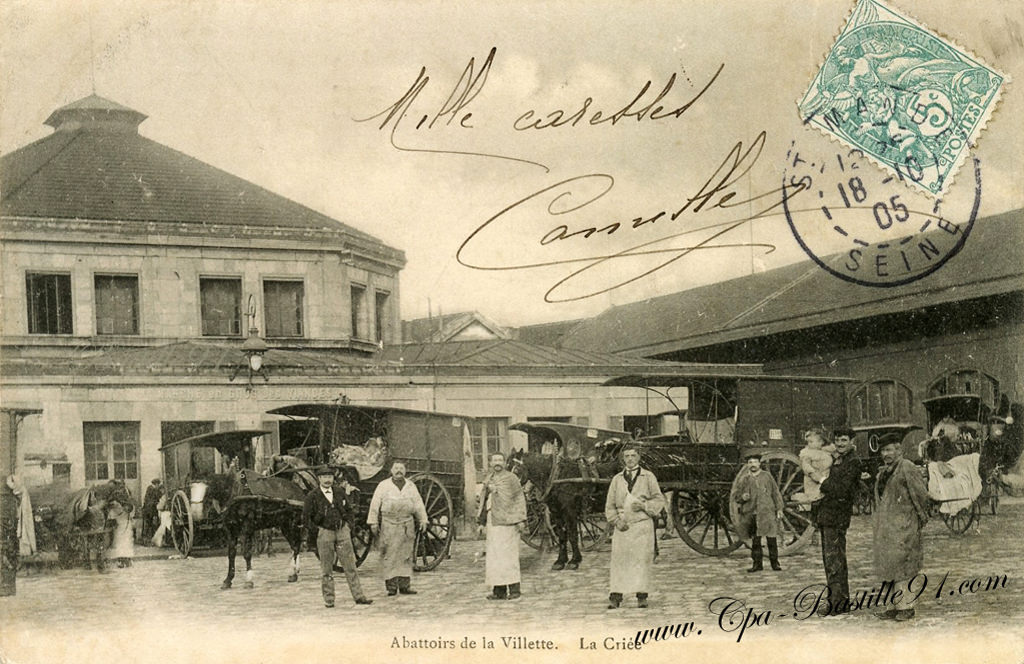 Mille caresses
Camille
FRANÇAISE
5c
POSTES
ST. MANDE
12
18 -10
05
SEINE
Abattoirs de la Villette. La Criée
www.Cpa-Bastille91.com